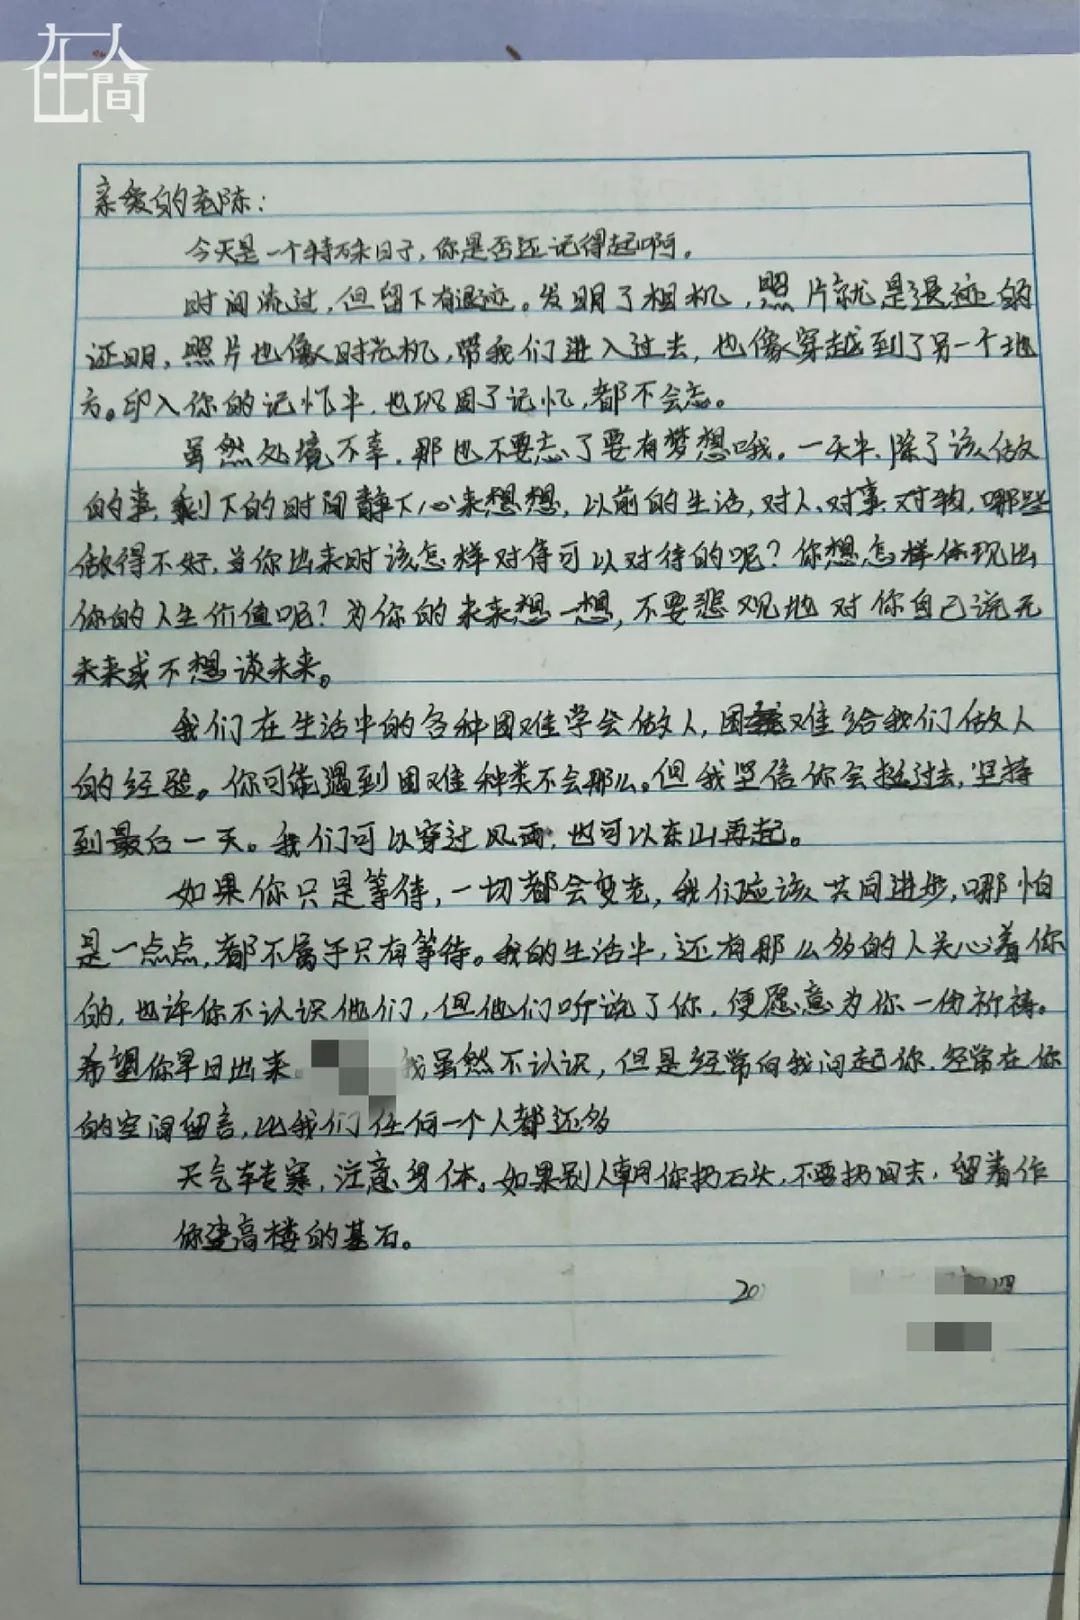 在人間
亲爱的老陈：
今天是一个特殊日子，你是否还记得起啊。
时间流过，但留下有退迹。发明了相机，照片就是退迹的
证明，照片也像时光机，带我们进入过去，也像穿越到了另一个地
方。印入你的记忆中，也巩固了记忆，都不会忘。
虽然处境不幸，那也不要忘了要有梦想哦。一天中，除了该做
的事，剩下的时间静下心来想想，以前的生活，对人、对事、对物，哪些
做得不好，当你出来时该怎样对待可以对待的呢？你想怎样体现出
你的人生价值呢？为你的未来想一想，不要悲观地对你自己说无
未来或不想谈未来。
我们在生活中的各种困难学会做人，困难给我们做人
的经验。你可能遇到困难种类不会那么。但我坚信你会挺过去，坚持
到最后一天。我们可以穿过风雨，也可以东山再起。
如果你只是等待，一切都会变老，我们应该共同进步，哪怕
是一点点，都不属于只有等待。我的生活中，还有那么多的人关心着你
的，也许你不认识他们，但他们听说了你，便愿意为你一份祈祷。
希望你早日出来。我虽然不认识，但是经常向我问起你，经常在你
的空间留言，比我们任何一个人都还多
天气转寒，注意身体。如果别人朝你扔石头，不要扔回去，留着作
你建高楼的基石。
20